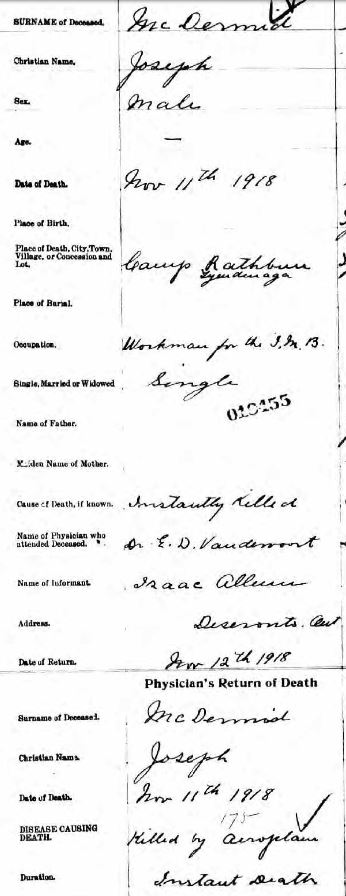 SURNAME of Deceased. McDermid
Christian Name. Joseph
Sex. Male
Age. —
Date of Death. Nov 11th 1918
Place of Birth.
Place of Death, City, Town,
Village, or Concession and
Lot. Camp Rathbun
Tyendinaga
Place of Burial.
Occupation. Workman for the I.M.B.
Single, Married or Widowed Single
010455
Name of Father.
Maiden Name of Mother.
Cause of Death, if known. Instantly Killed
Name of Physician who
attended Deceased. Dr. E. D. Vandervoort
Name of Informant. Isaac Allum
Address. Deseronto. Ont
Date of Return. Nov 12th 1918
Physician's Return of Death
Surname of Deceased. McDermid
Christian Name. Joseph
Date of Death. Nov 11th 1918
175
DISEASE CAUSING
DEATH. Killed by aeroplane
Duration. Instant Death